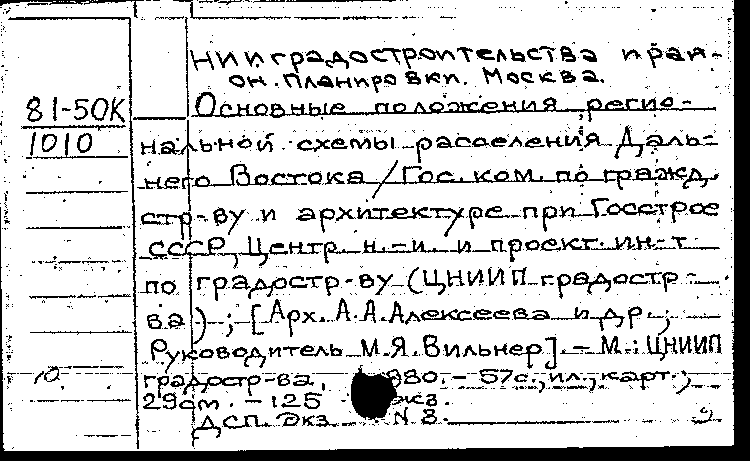 НИИ градостроительства и рай-
он. планировки. Москва.
81-50К Основные положения регио-
1010 нальной схемы расселения Даль-
него Востока /Гос. ком. по гражд.
стр-ву и архитектуре при Госстрое
СССР, Центр. н.-и. и проект. ин-т
по градостр-ву (ЦНИИП градостр-
ва) ; [Арх. А.А.Алексеева и др.;
Руководитель М.Я.Вильнер]. – М.: ЦНИИП
градостр-ва, 980. – 57с., ил., карт.;
29см. – 125 экз.
ДСП. Экз. N 8.